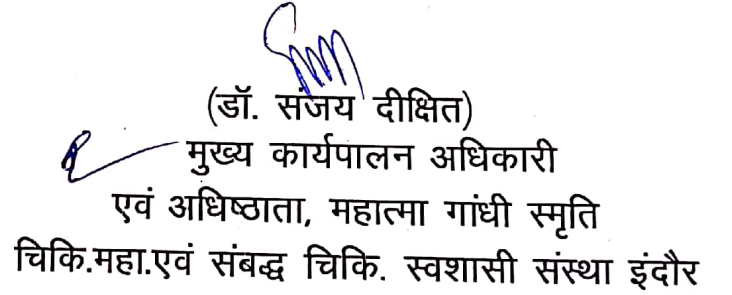 (डॉ. संजय दीक्षित)
मुख्य कार्यपालन अधिकारी
एवं अधिष्ठाता, महात्मा गांधी स्मृति
चिकि.महा.एवं संबद्ध चिकि. स्वशासी संस्था इंदौर